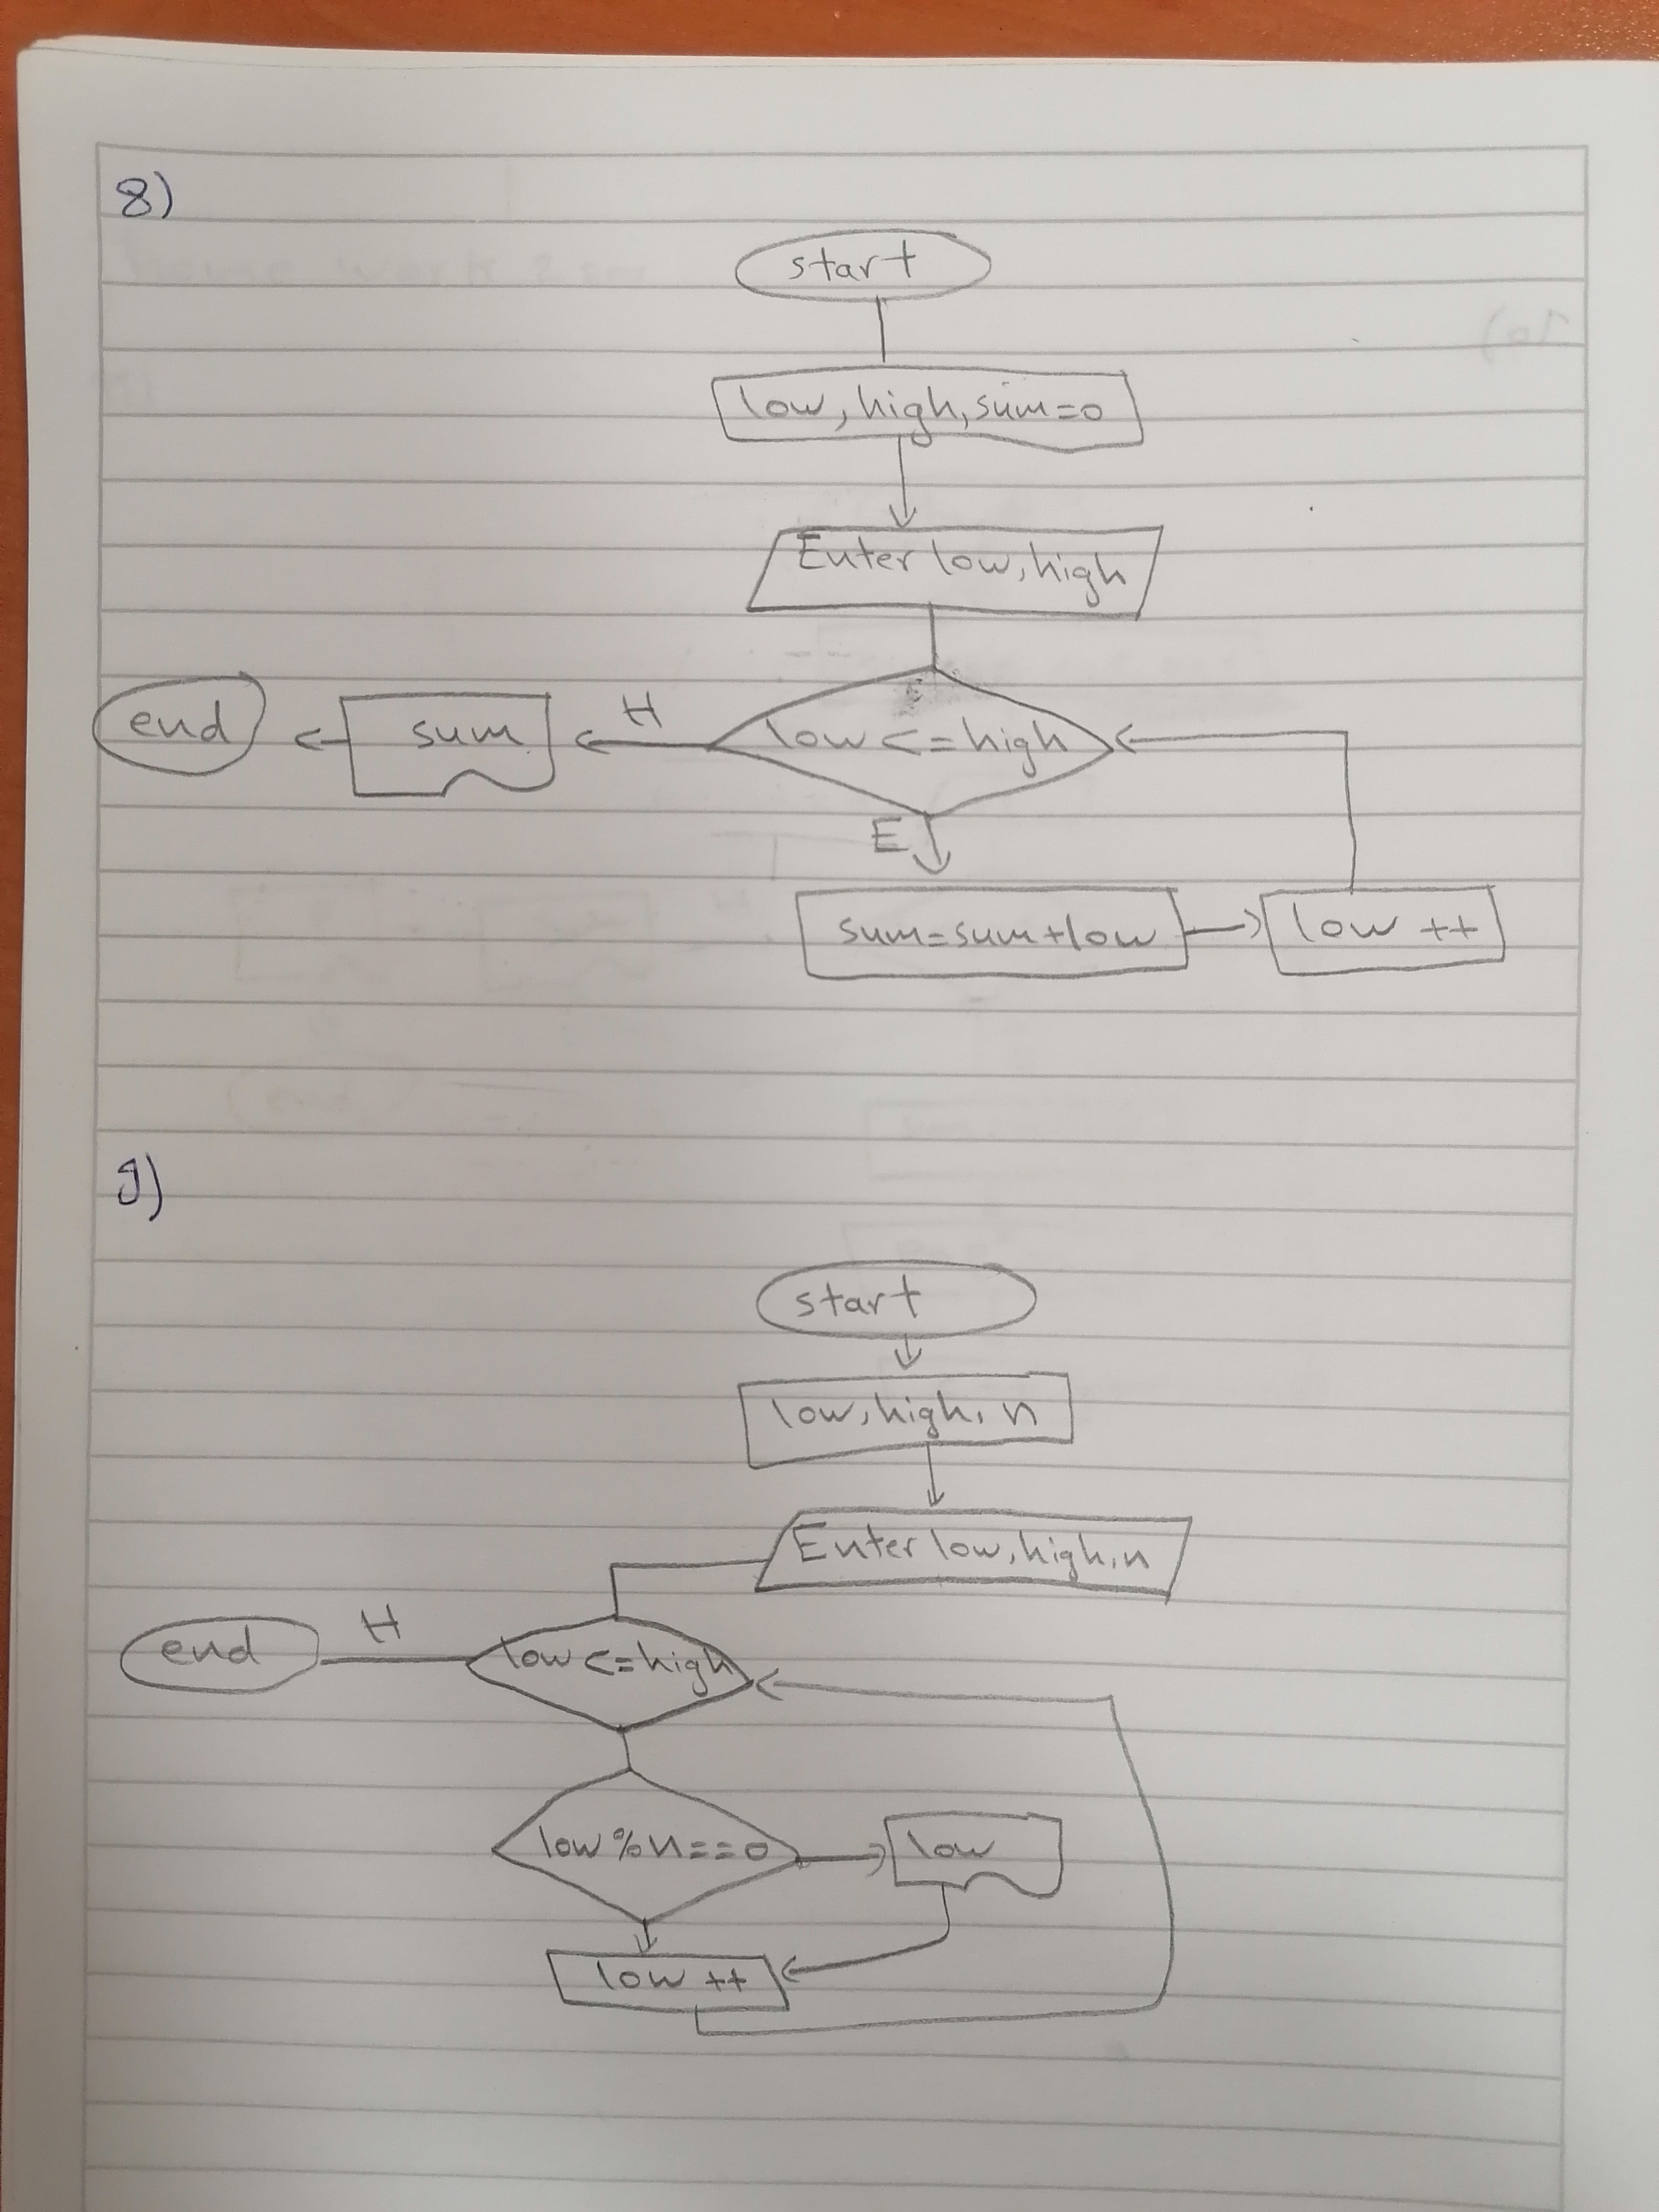 8)
start
low, high, sum=0
Enter low, high
end
sum
H
low <= high
E
sum=sum+low
low ++
9)
start
low, high, n
Enter low, high, n
end
H
low <= high
low % n == 0
low
low ++